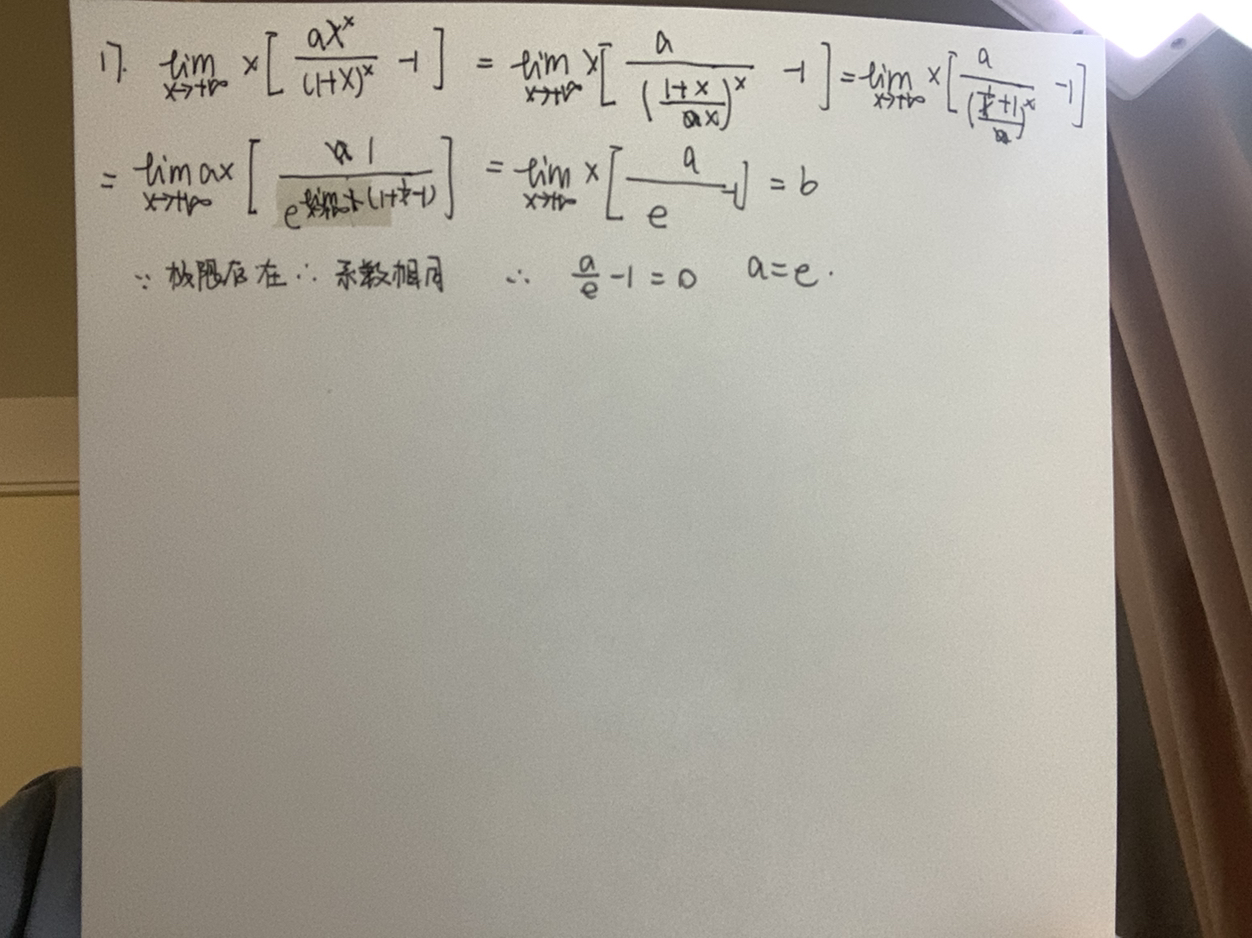 17. lim x→+∞ x[ax^x/(1+x)^x -1] = lim x→+∞ x[a/((1+x)/x)^x -1] = lim x→+∞ x[a/(1/x+1)^x -1]
= lim x→+∞ ax[1/e] = lim x→+∞ x[a/e -1] = b
∵ 极限存在 ∴ 系数相同 ∴ a/e -1 = 0 a=e.